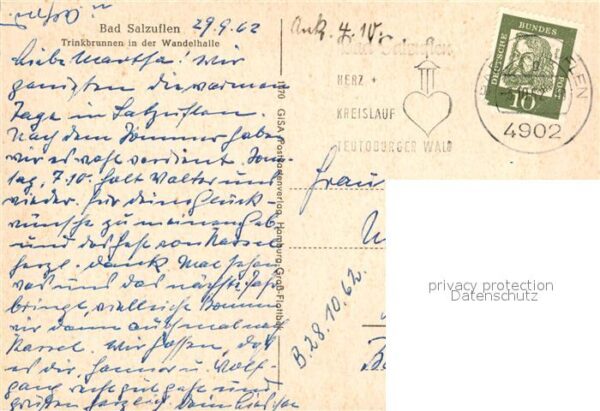 Bad Salzuflen 29.9.62
Trinkbrunnen in der Wandelhalle
Liebe Martha! Wir
genießen die warmen
Tage in Salzuflen.
Nach dem Sommer haben
wir es wohl verdient. Sonn-
tag, 7.10. holt Walter uns
wieder. Für Deine Glück
wünsche zu meinem Geb.
und das Heft von Kassel
herzl. Dank. Mal sehen
was uns das nächste Jahr
bringt, vielleicht kommen
wir dann auch mal nach
Kassel. Wir hoffen, daß
es Dir, Hannes u. Wolf-
gang recht gut geht und
grüßen herzlich Dein
1170 GISA Postkartenverlag, Hamburg Groß-Flottbek
Ank. 4.10.
Bad Salzuflen
HERZ +
KREISLAUF
TEUTOBURGER WALD
DEUTSCHE BUNDES
10
4902
Frau
B. 28.10.62.
privacy protection
Datenschutz